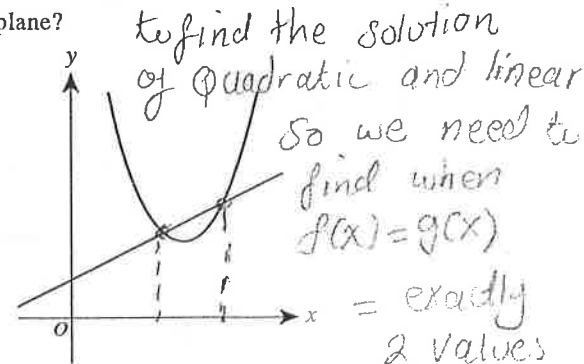 plane?
to find the solution
of Quadratic and linear
So we need to
find when
f(x) = g(x)
= exactly
2 values
y
O
x